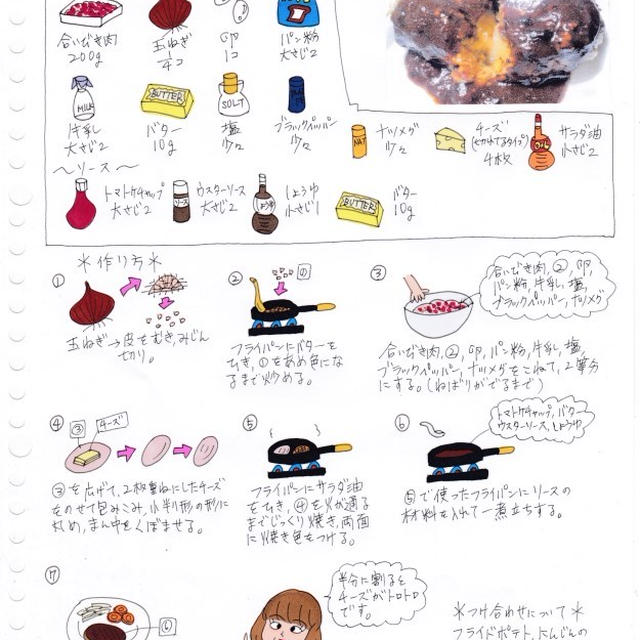 合いびき肉
200g
玉ねぎ
4コ
卵
1コ
パン粉
大さじ2
MILK
BUTTER
SOLT
牛乳
大さじ2
バター
10g
塩
少々
ブラックペッパー
少々
NAT
ナツメグ
少々
チーズ
(切れてるタイプ)
4枚
OIL
サラダ油
小さじ2
〜ソース〜
トマトケチャップ
大さじ2
ソース
ウスターソース
大さじ2
しょうゆ
しょうゆ
小さじ1
BUTTER
バター
10g
*作り方*
①
玉ねぎ→皮をむき、みじん
切り。
②
①
フライパンにバターを
ひき、①をあめ色にな
るまで炒める。
③
合いびき肉、②、卵、
パン粉、牛乳、塩、
ブラックペッパー、ナツメグ
合いびき肉、②、卵、パン粉、牛乳、塩、
ブラックペッパー、ナツメグをこねて、2等分
にする。(ねばりがでるまで)
④
③
チーズ
③を広げて、2枚重ねにしたチーズ
をのせて包みこみ、小判形の形に
丸め、まん中をくぼませる。
⑤
フライパンにサラダ油
をひき、④を火が通る
までじっくり焼き、両面
に焼き色をつける。
⑥
トマトケチャップ、バター
ウスターソース、しょうゆ
⑤で使ったフライパンにソースの
材料を入れて一煮立ちする。
⑦
⑥
半分に割ると
チーズがトロトロ
です。
*つけ合わせについて*
フライドポテト、にんじんの